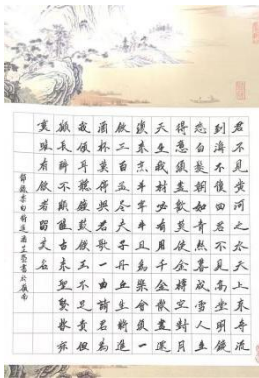 君不見黃河之水天上來奔流
到海不復回君不見高堂明鏡
悲白髮朝如青絲暮成雪人生
得意須盡歡莫使金樽空對月
天生我材必有用千金散盡還
復來烹羊宰牛且為樂會須一
飲三百杯岑夫子丹丘生將進
酒杯莫停與君歌一曲請君為
我傾耳聽鐘鼓饌玉不足貴但
願長醉不願醒古來聖賢皆寂
寞唯有飲者留其名
節錄李白將進酒書於嶺南